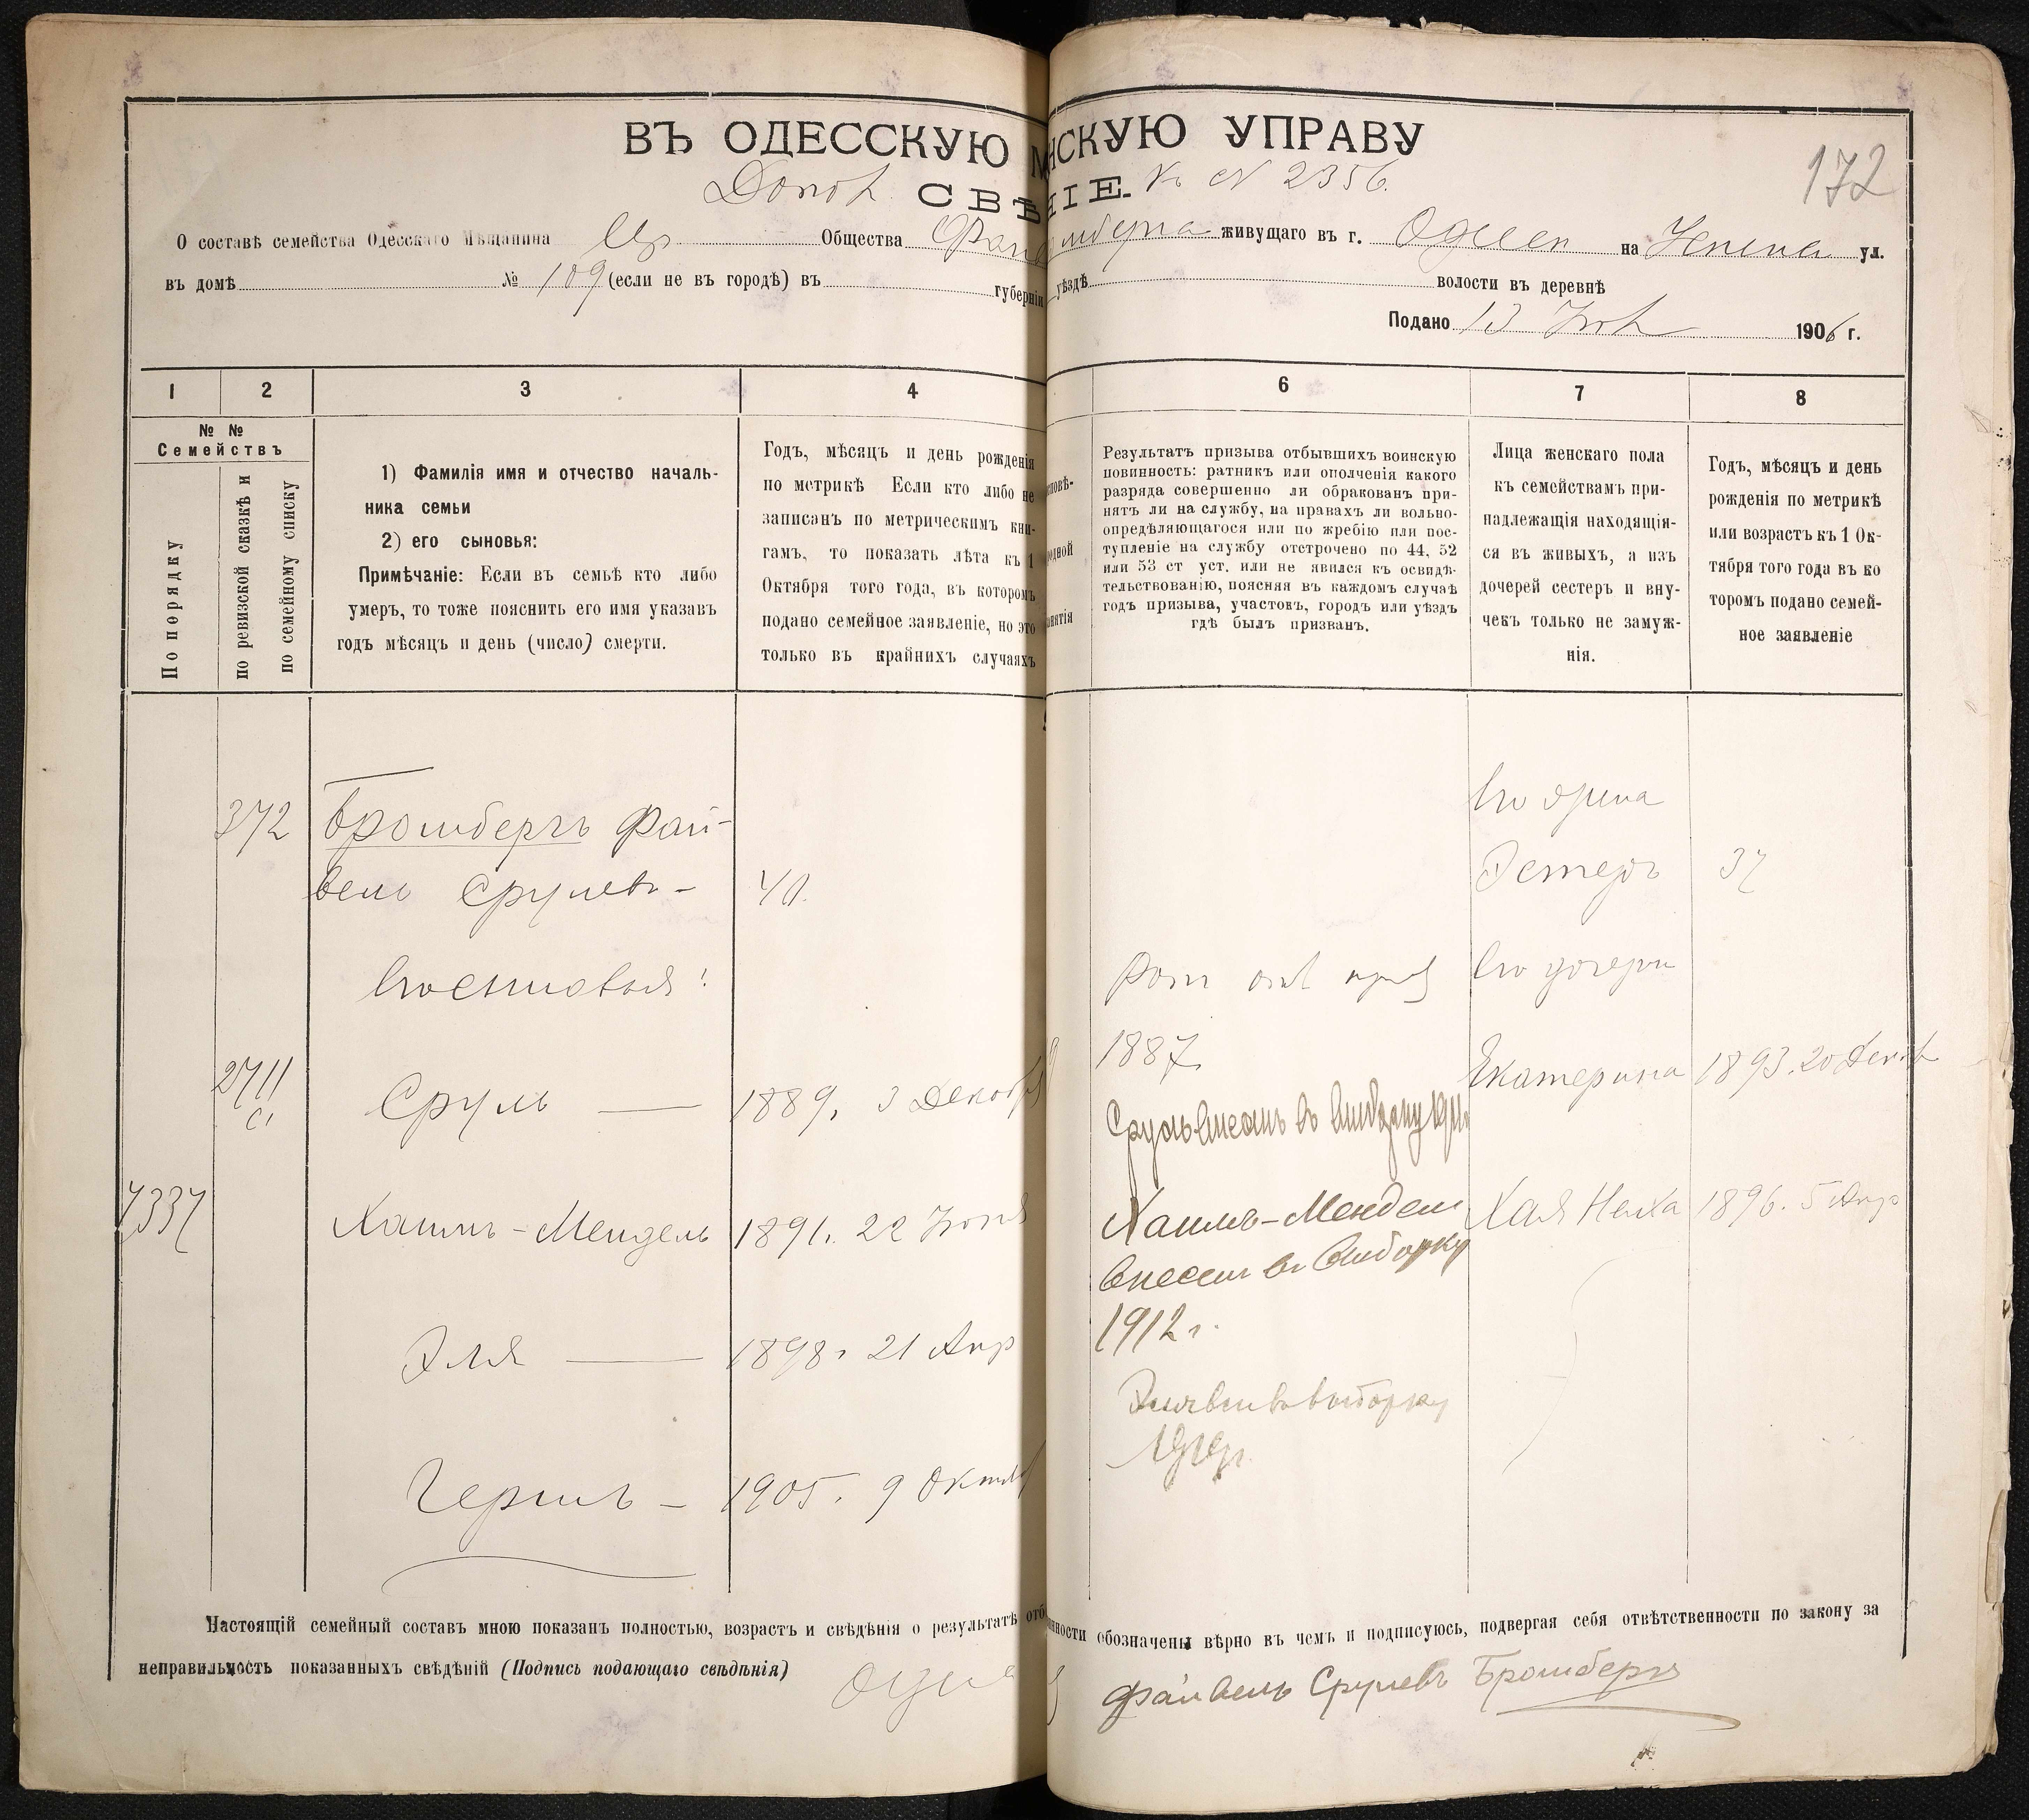 ВЪ ОДЕССКУЮ М НСКУЮ УПРАВУ
172
СВѢ НІЕ. к № 2356.
О составѣ семейства Одесскаго Мѣщанина Общества живущаго въ г. Одессѣ на ул.
въ домѣ № 109 (если не въ городѣ) въ губерніи уѣздѣ волости въ деревнѣ
Подано 13 1906 г.
1 2 3 4 6 7 8
№ № Семействъ
По порядку
по ревизской сказкѣ и
по семейному списку
1) Фамилія имя и отчество началь-
ника семьи
2) его сыновья:
Примѣчаніе: Если въ семьѣ кто либо
умеръ, то тоже пояснить его имя указавъ
годъ мѣсяцъ и день (число) смерти.
Годъ, мѣсяцъ и день рожденія
по метрикѣ Если кто либо не
записанъ по метрическимъ кни-
гамъ, то показать лѣта къ 1
Октября того года, въ которомъ
подано семейное заявленіе, но это
только въ крайнихъ случаяхъ
Результатъ призыва отбывшихъ воинскую
повинность: ратникъ или ополченія какого
разряда совершенно ли обракованъ при-
нятъ ли на службу, на правахъ ли вольно-
опредѣляющагося или по жребію или пос-
тупленіе на службу отстрочено по 44, 52
или 53 ст уст. или не явился къ освидѣ-
тельствованію, поясняя въ каждомъ случаѣ
годъ призыва, участокъ, городъ или уѣздъ
гдѣ былъ призванъ.
Лица женскаго пола
къ семействамъ при-
надлежащія находящія-
ся въ живыхъ, а изъ
дочерей сестеръ и вну-
чекъ только не замуж-
нія.
Годъ, мѣсяцъ и день
рожденія по метрикѣ
или возрастъ къ 1 Ок-
тября того года въ ко
торомъ подано семей-
ное заявленіе
372 Бромбергъ Фай-
вель Срулевъ -
Его сыновья:
1887
2711
Сруль — 1889, 3 Декабря
7337 Хаимъ-Мендель 1891. 22 Іюня
Эля — 1898 г 21 Апр
Гершъ — 1905. 9 Октяб
Хаимъ-Мендель
внесенъ въ выборку
1912 г.
Эстеръ 37
Его дочери
Екатерина 1893. 20 Декаб
Хая Неха 1896. 5 Апр
Настоящій семейный составъ мною показанъ полностью, возрастъ и свѣдѣнія о результатѣ отб нности обозначены вѣрно въ чемъ и подписуюсь, подвергая себя отвѣтственности по закону за
неправильность показанныхъ свѣдѣній (Подпись подающаго свѣдѣнія)
Файвель Срулевъ Бромбергъ